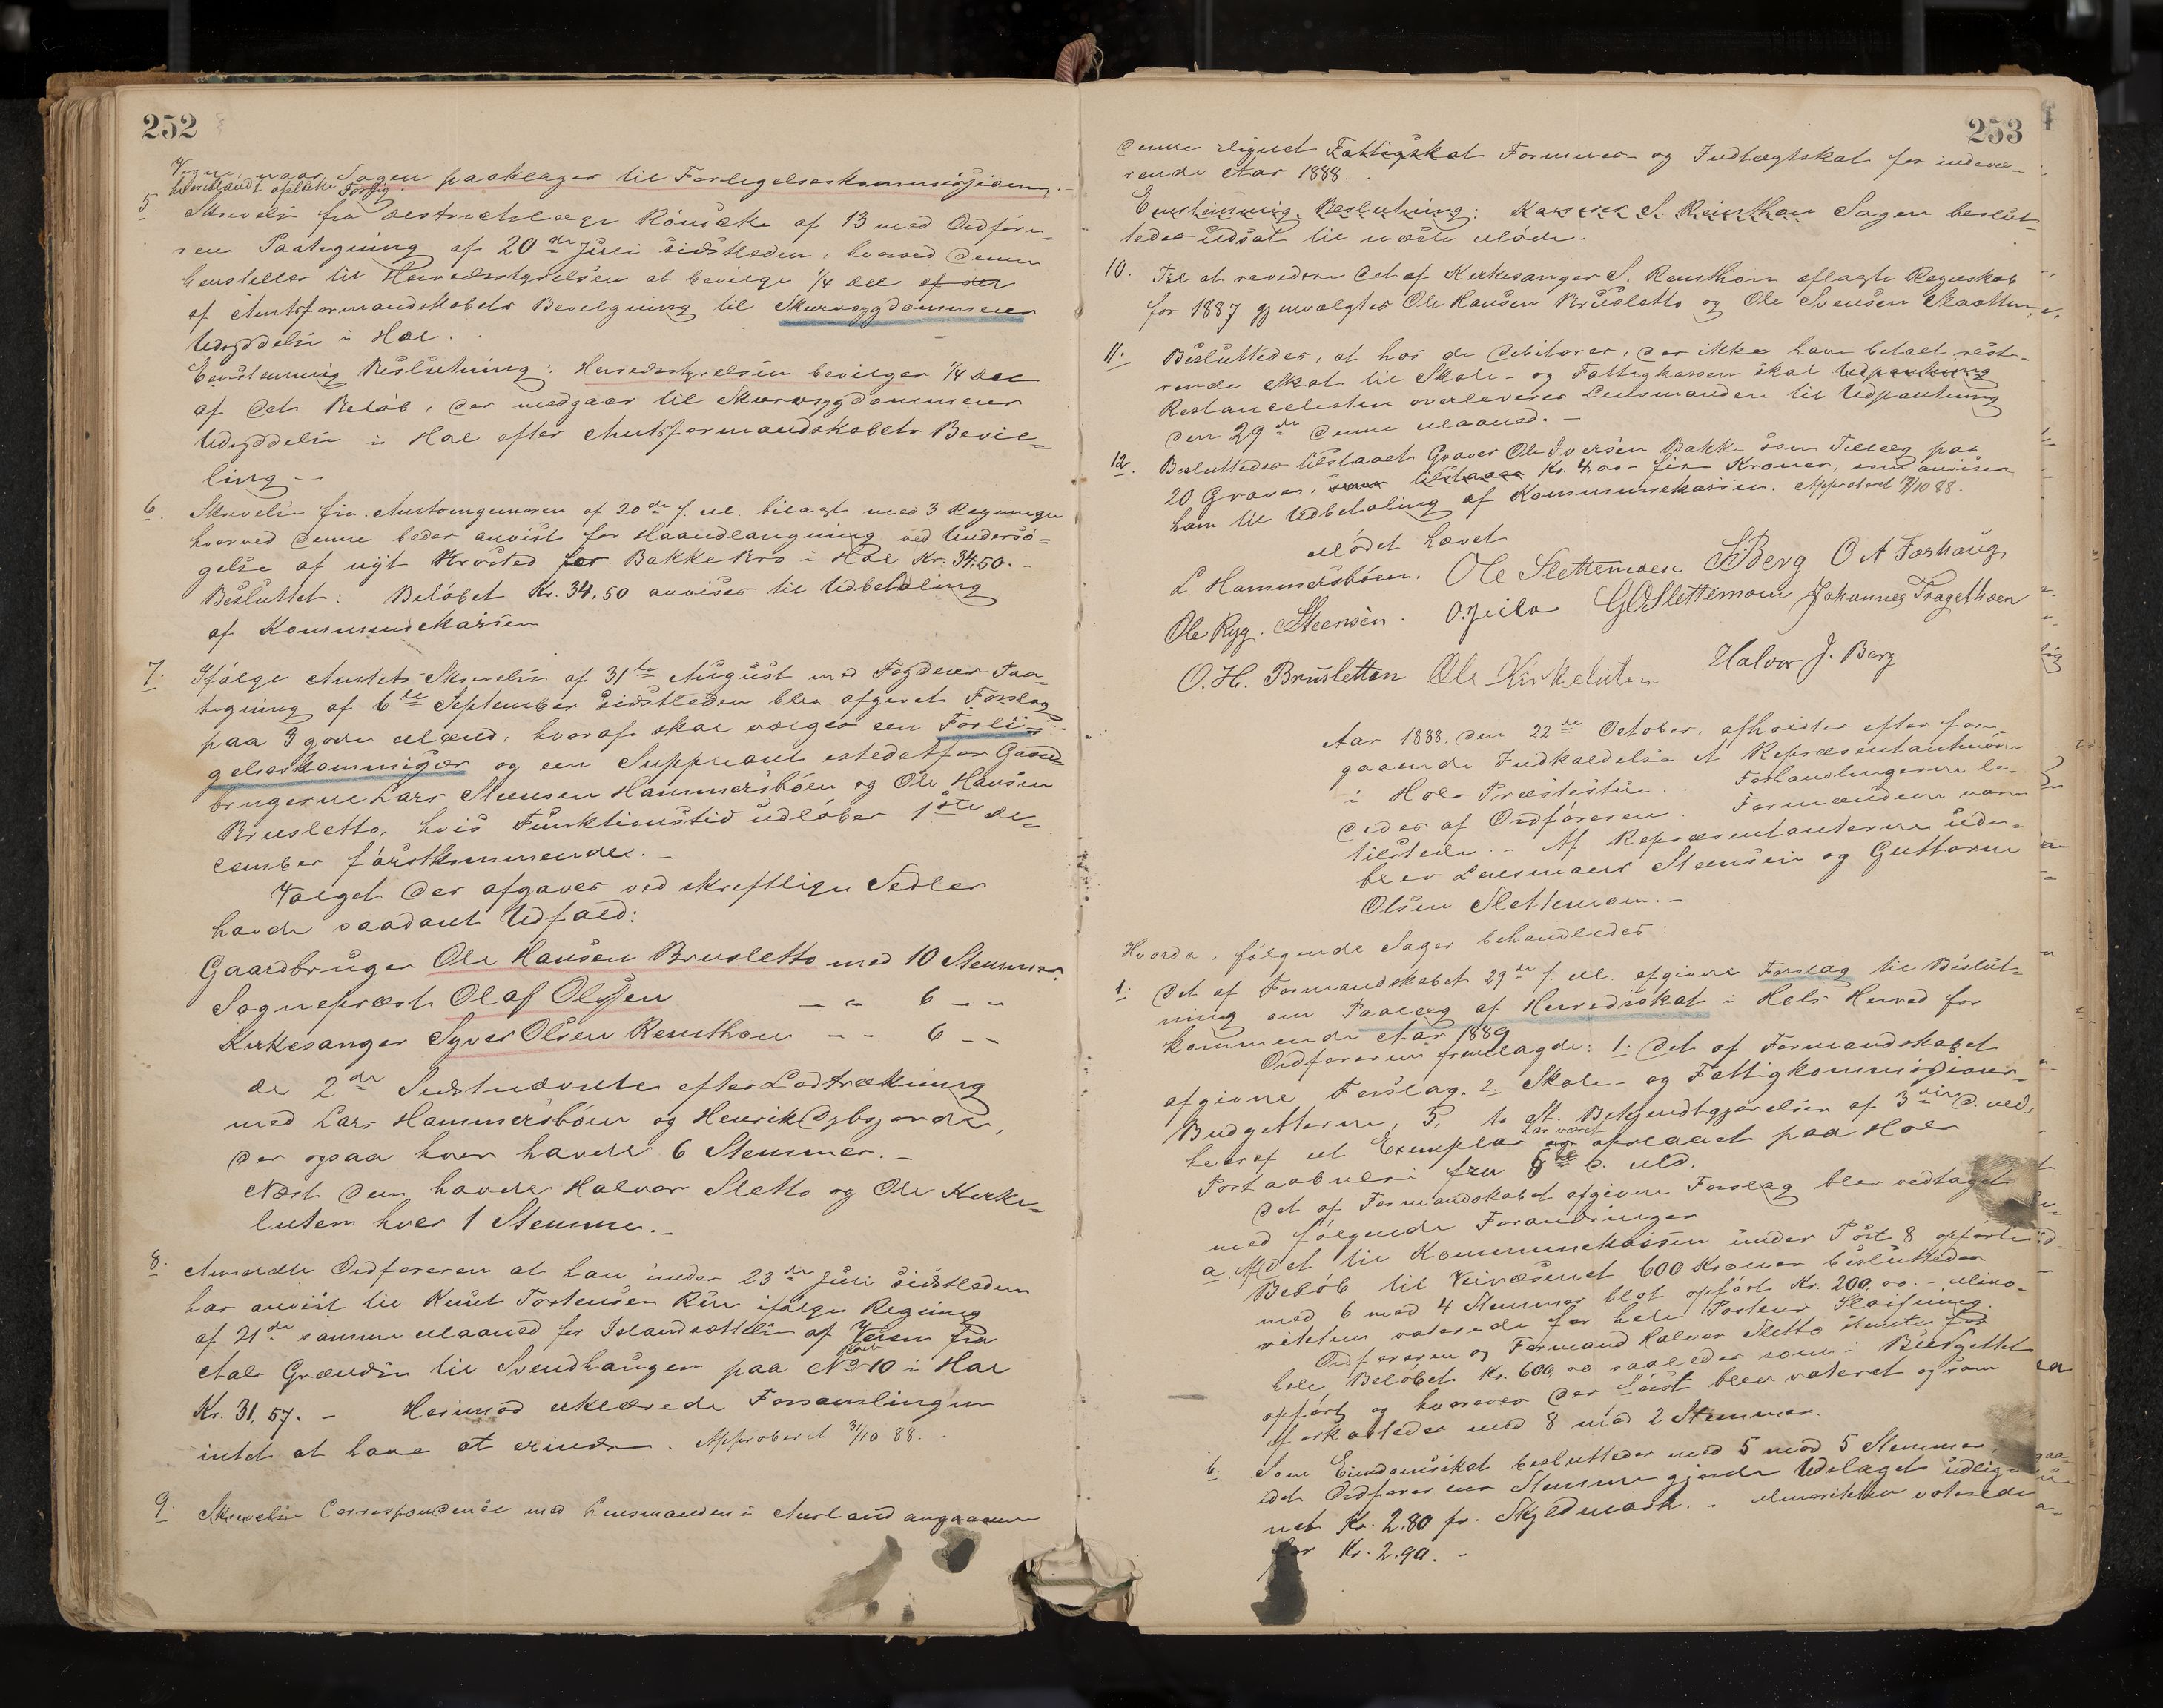 252
Sagen paaklages til Forligelseskommissionen.
5. Skrivelse fra Destriktslæge Rönecke af 13 med Ordföre-
rens Paategning af 20de Juli sidstleden, hvorved denne
henstiller til Herredsstyrelsen at bevilge 1/4 Del af der
af Amtsformandskabets Bevilgning til Skurvsygdommens
Udryddelse i Hol.
Eenstemmig Beslutning: Herredsstyrelsen bevilger 1/4 Del
af det Belöb, der medgaar til Skurvsygdommens
Udryddelse i Hol efter Amtsformandskabets Bevil-
ling.-
6. Skrivelse fra Amtsingeniören af 20de f. M. bilagt med 3 Regninger
hvorved denne beder anvist for Haandlangning ved Undersö-
gelse af nyt Brosted for Bakke Bro i Hol Kr. 34.50.-
Besluttet: Belöbet Kr. 34.50 anvises til Udbetaling
af Kommunekassen
7. Ifölge Amtets Skrivelse af 31te August med Fogdens Paa-
tegning af 6te September sidstleden blev afgivet Forslag
paa 3 gode Mænd, hvoraf skal vælges een Forli-
gelseskommissær og een Suppleant istedetfor Gaard-
brugerne Lars Steensen Hammersböen og Ole Hansen
Brusletto, hvis Funktionstid udlöber 1ste De-
cember förstkommende.-
Valget der afgaves ved skriftlige Sedler
havde saadant Udfald:
Gaardbruger Ole Hansen Brusletto med 10 Stemmer
Sogneprest Olaf Olssen — " 6 - "
Kirkesanger Syver Olsen Reinthon - - 6 - -
de 2de Sidstnævnte efter Lodtrækning
med Lars Hammersböen og Henrik Dybsjorde,
der ogsaa hver havde 6 Stemmer.-
Næst dem havde Halvor Sletto og Ole Kirke-
luten hver 1 Stemme.-
8. Anmeldte Ordföreren at han under 23de Juli sidstleden
har anvist til Knut Torstensen Rue ifölge Regning
af 21de samme Maaned for Istandsættelse af Veien fra
Aals Grændse til Svendhaugen paa No 10 i Hol
Kr. 31,57.- Herimod erklærede Forsamlingen
intet at have at erindre. Approberet 31/10 88.
9. Skrivelse Correspondence med Lensmanden i Aurland angaaende
253
denne lignet Fattigskat Formues- og Indtægtskat for indevæ-
rende Aar 1888.
Eenstemmig Beslutning: Kasserer S. Reinthon Sagen beslut-
tedes udsat til næste Möde.
10. Til at revidere det af Kirkesanger S. Reinthon aflagte Regnskab
for 1887 gjenvalgtes Ole Hansen Brusletto og Ole Svensen Skaatten.
11. Besluttedes, at hos de Debitorer, der ikke have betalt reste-
rende Skat til Skole- og Fattigkassen skal Udpantning
Restancelisten overleveres Lensmanden til Udpantning
den 29de denne Maaned.-
12. Besluttedes tilstaaet Graver Ole Iversen Bakke som Tillæg paa
20 Graver, tilstaaes Kr. 4,00 - fire Kroner, som anvises
ham til Udbetaling af Kommunekassen. Approberet 31/10 88.
Mödet hævet
L. Hammersböen. Ole Slettemoen S. Berg O A Forhaug
Ole Ryg. Steensen. GOSlettemoen Johannes Tragethoen
O. H. Brusletten Ole Kirkeluten Halvor J. Berg
Aar 1888, den 22de October, afholdtes efter fore-
gaaende Indkaldelse et Repræsentantmöde
i Hols Præstestue.- Forhandlingerne le-
dedes af Ordföreren. Formændene vare
tilstede.- Af Repræsentanterne ude-
blev Lensmand Steensen og Guttorm
Olsen Slettemoen.-
Hvorda, fölgende Sager behandledes:
1. Det af Formandskabet 29de f. M. afgivne Forslag til Beslut-
ning om Paalæg af Herredsskat i Hols Herred for
kommende Aar 1889
Ordföreren fremlagde: 1. Det af Formandskabet
afgivne Forslag. 2. Skole- og Fattigkommissioner-
Budgetterne, 3, to St. Bekjendtgjörelser af 3die d. Md,
hvoraf et Exemplar har været opslaaet paa Hols
Postaabneri fra 6te d. Md.
Det af Formandskabet afgivne Forslag blev vedtaget
med fölgende Forandringer
a. Af det til Kommunekassen under Post 8 opförte
Belöb til Veivæsenet 600 Kroner besluttedes
med 6 mod 4 Stemmer blot opfört Kr. 200,00.- Mino-
riteten voterede for hele Postens Slöifning.
Ordföreren og Formand Halvor Sletto stemte for
hele Belöbet Kr. 600,00 saaledes som i Budgettet
opfört og hvorover der först blev voteret og som
forkastedes med 8 mod 2 Stemmer.
b. Som Eiendomsskat besluttedes med 5 mod 5 Stemmer,
idet Ordförerens Stemme gjorde Udslaget udlig-
net Kr. 2.80 pr. Skyldmark.- Minoriteten voterede
for Kr. 2.90.-